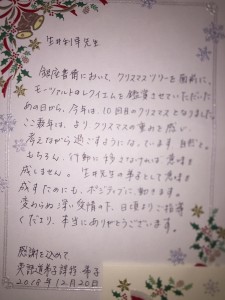 生井利幸先生
銀座書斎において、クリスマスツリーを面前に、
モーツァルトのレクイエムを鑑賞させていただいた
あの日から、今年は、10回目のクリスマスとなりました
ここ数年は、よりクリスマスの重みを感じ、
考えながら過ごすようになっています
もちろん、行動に移さなければ意味を
成しません。生井先生の弟子として意味を
成すためにも、ポジティブに動きます。
変わらぬ深い愛情の下、日頃よりご指導
くださり、本当にありがとうございます。
感謝を込めて
英語道弟子課程 弟子
2018年12月20日